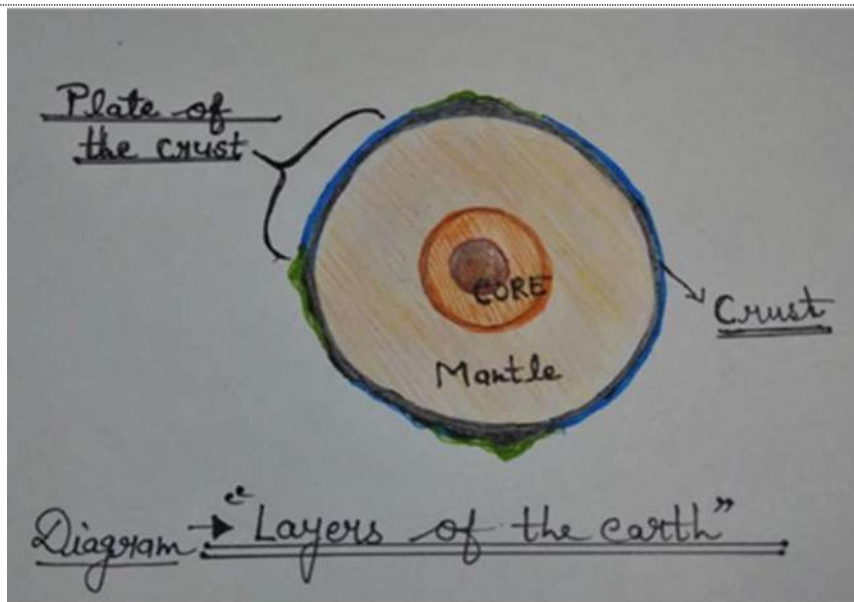 Plate of
the crust
CORE
Crust
Mantle
Diagram → "Layers of the earth"